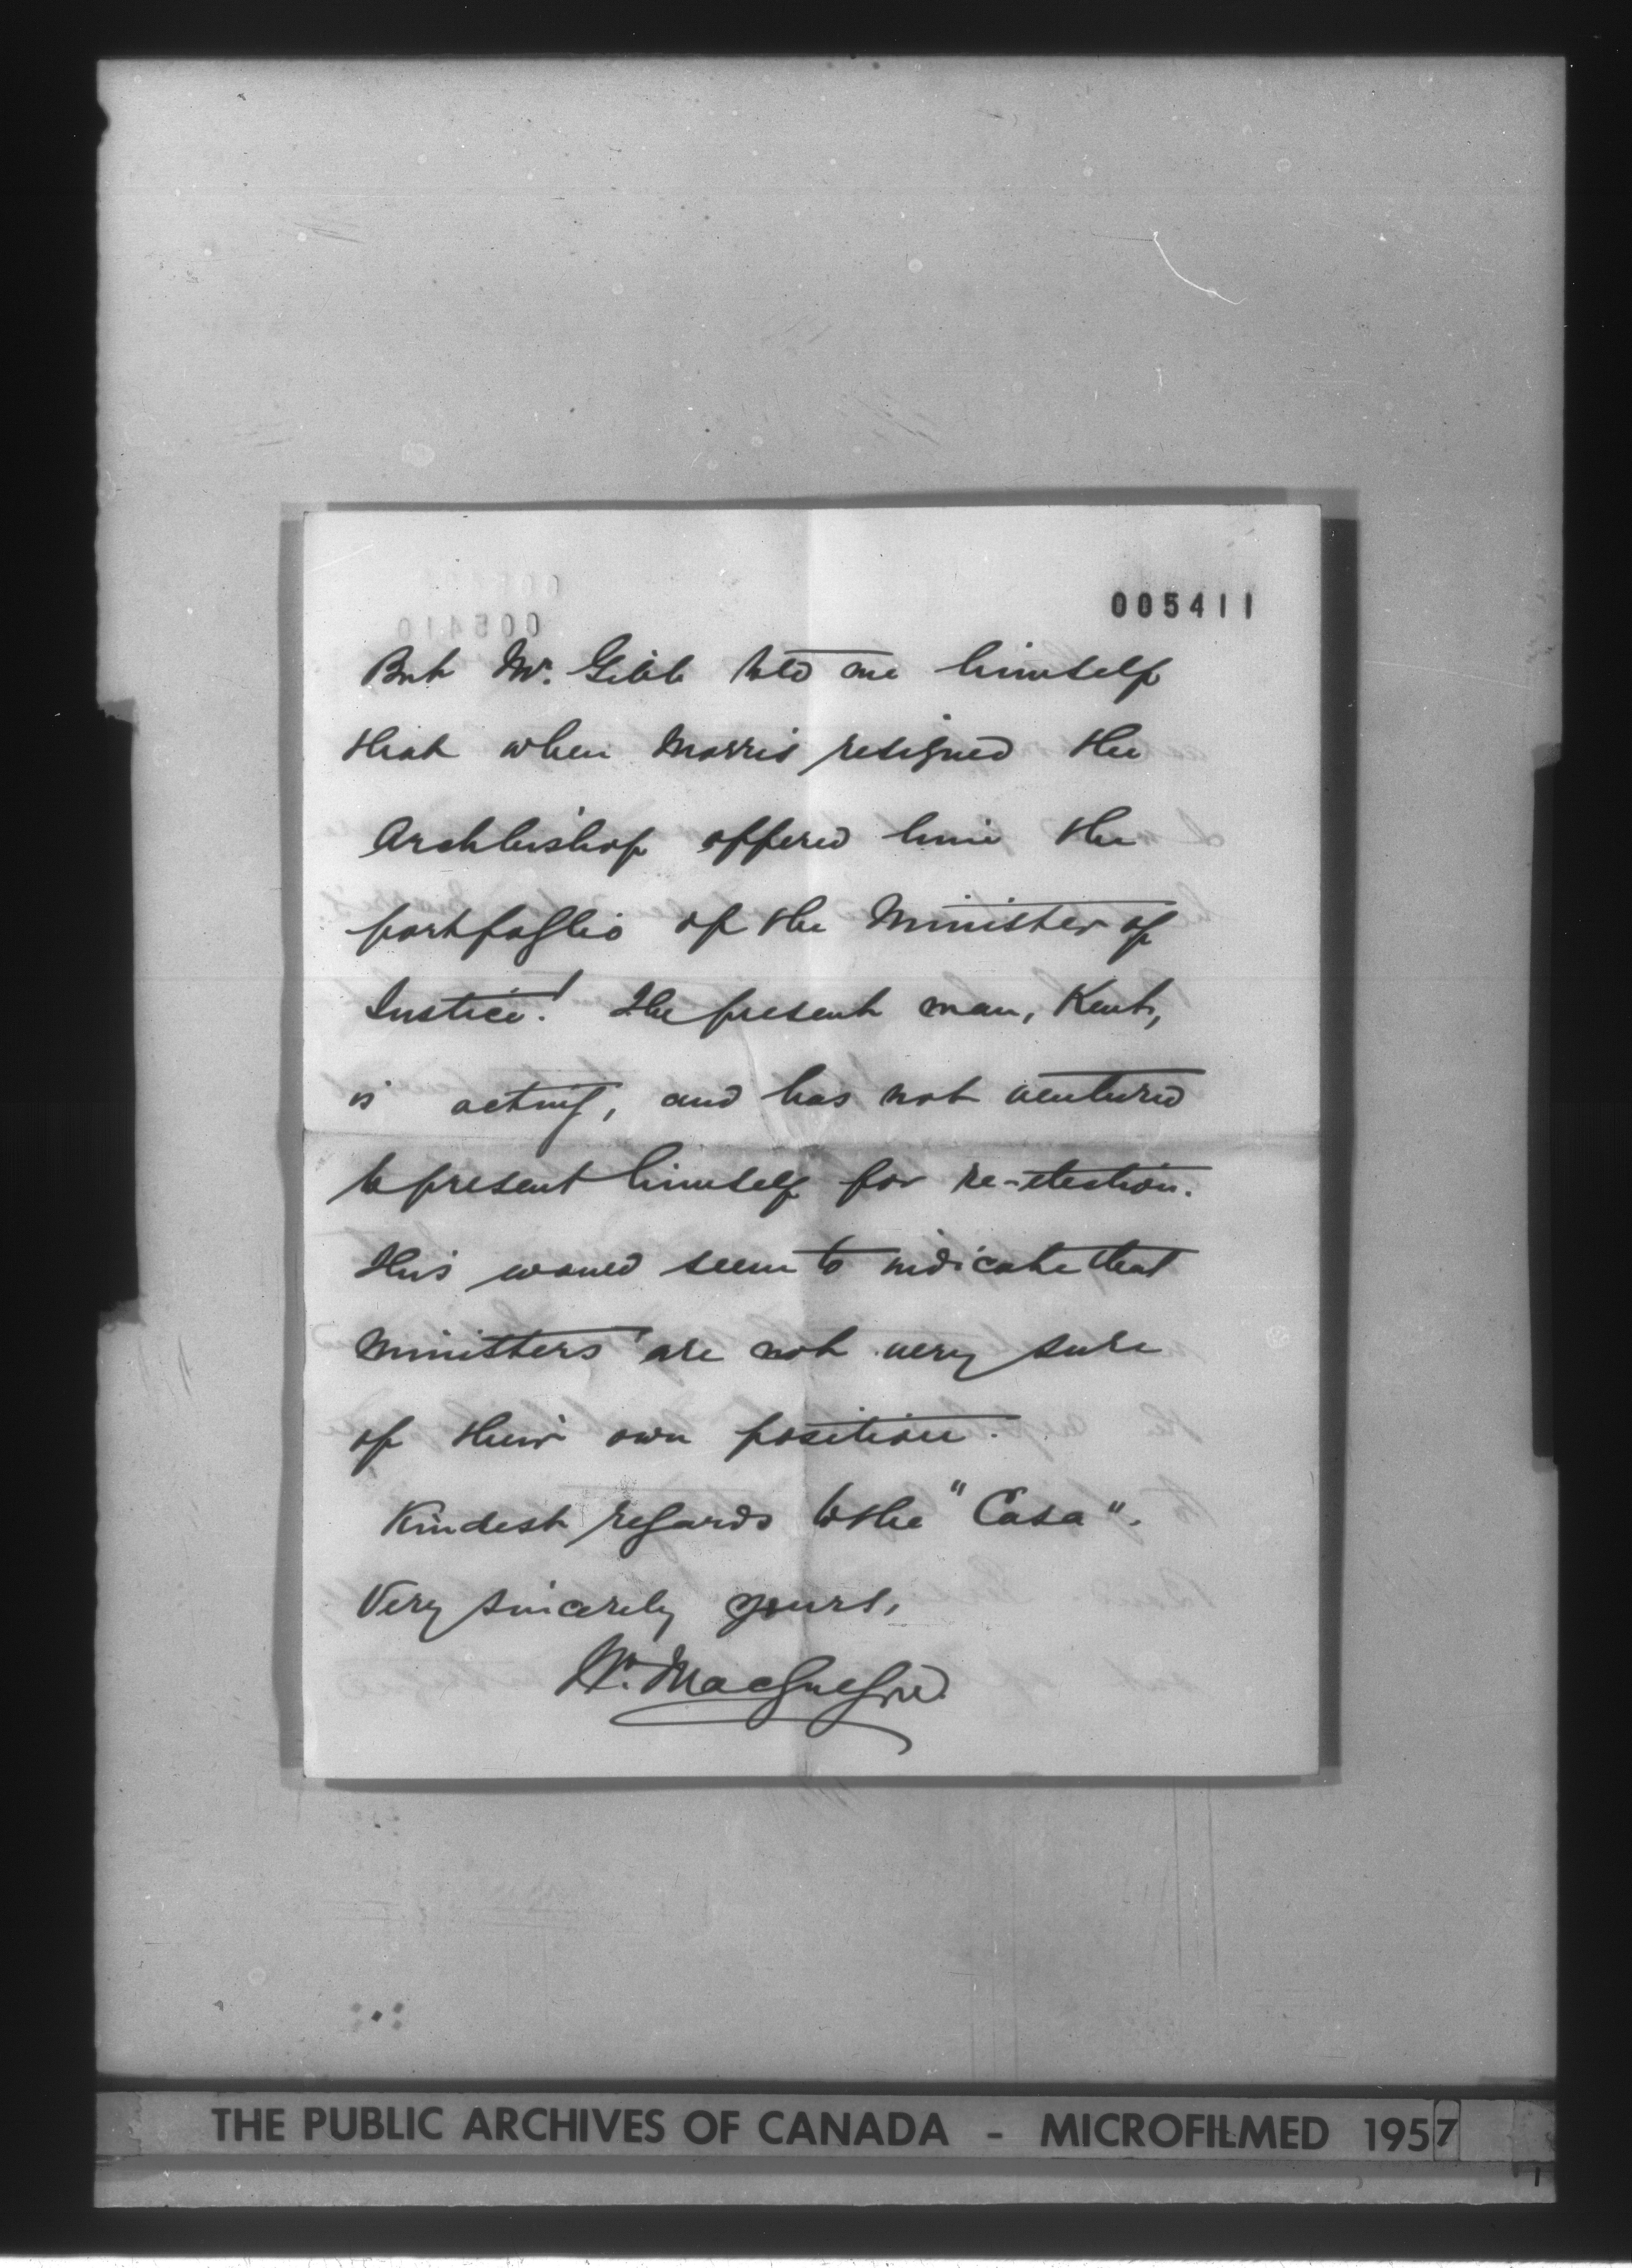 005411
But Mr. Gibb told me himself
that when Morris resigned the
Archbishop offered him the
portfoglio of the Minister of
Justice! The present man, Kent,
is acting, and has not ventured
to present himself for re-election.
This would seem to indicate that
Ministers are not very sure
of their own position.
Kindest regards to the "Casa".
Very sincerely yours,
Wm. MacGregor.
THE PUBLIC ARCHIVES OF CANADA - MICROFILMED 1957